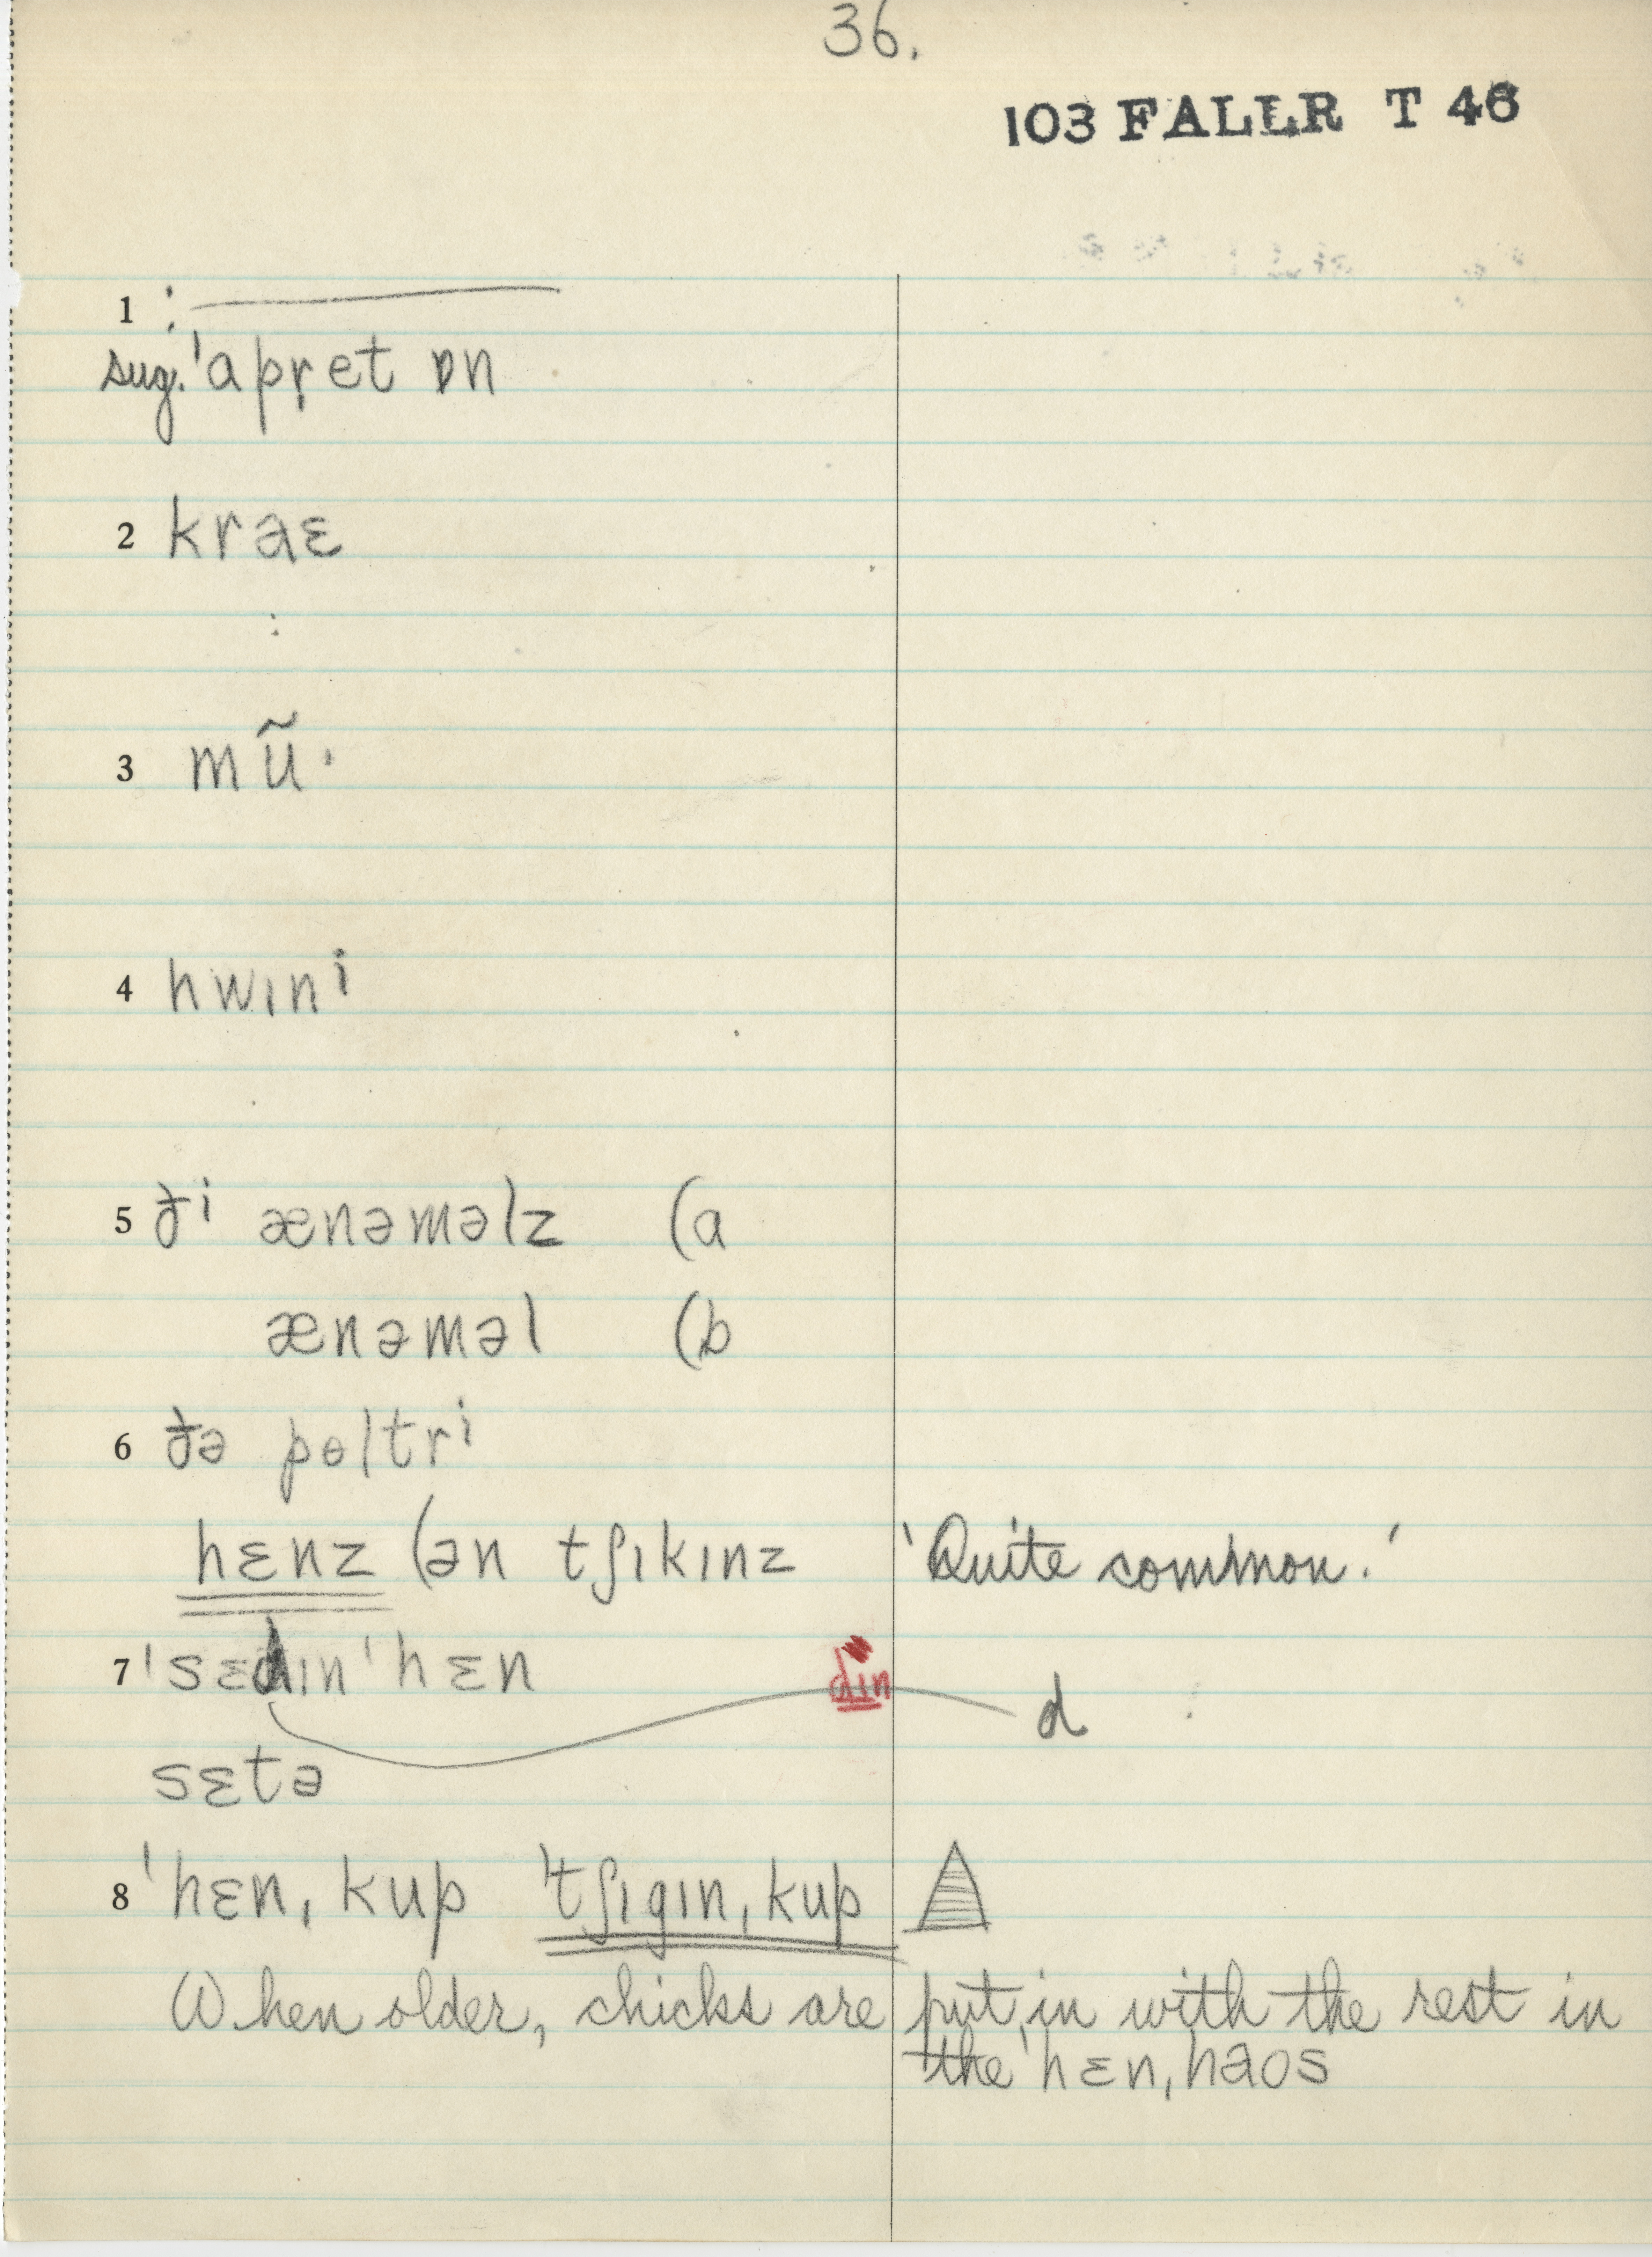 36.
103 FALLR T 46
1 :
sug. ˈapr̩et ɒn
2 kraɛ
:
3 mũ·
4 hwɪnⁱ
5 ðⁱ ænəməlz (a
ænəməl (b
6 ðə pɵltrⁱ
hɛnz (ən tʃɪkɪnz 'Quite common.'
7 ˈsɛdɪnˈhɛn dɪn d
sɛtə
8 ˈhɛnˌkup ˈtʃɪgɪnˌkup
When older, chicks are put in with the rest in
the ˈhɛnˌhaos